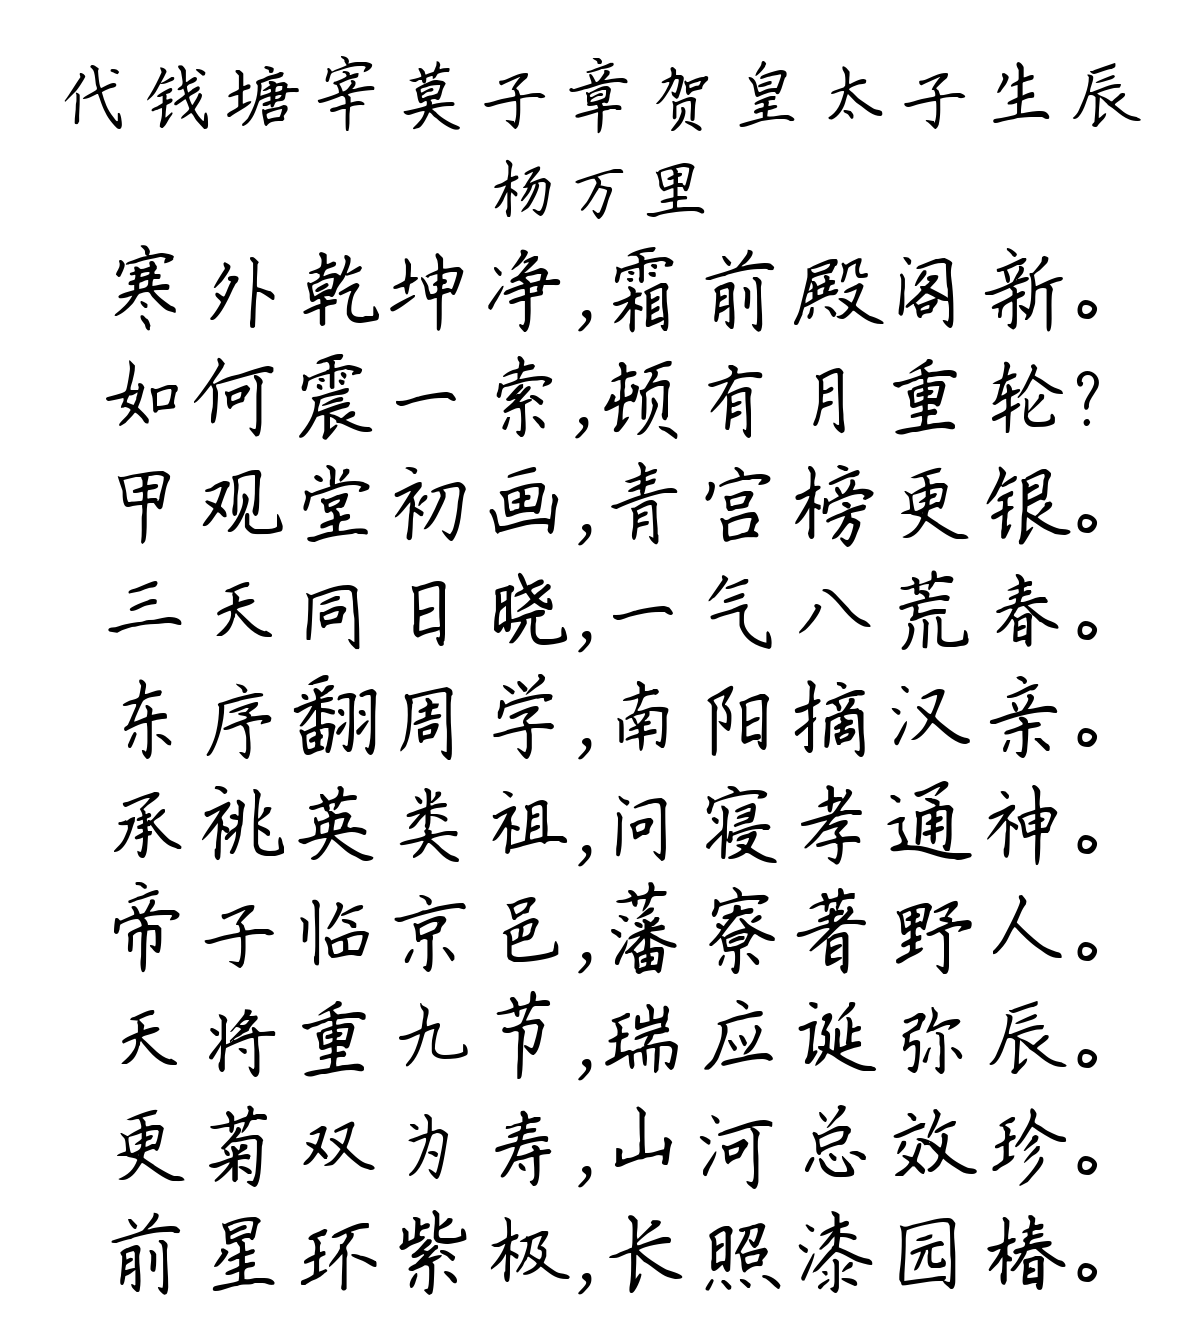 代钱塘宰莫子章贺皇太子生辰
杨万里
寒外乾坤净,霜前殿阁新。
如何震一索,顿有月重轮?
甲观堂初画,青宫榜更银。
三天同日晓,一气八荒春。
东序翻周学,南阳摘汉亲。
承祧英类祖,问寝孝通神。
帝子临京邑,藩寮著野人。
天将重九节,瑞应诞弥辰。
更菊双为寿,山河总效珍。
前星环紫极,长照漆园椿。